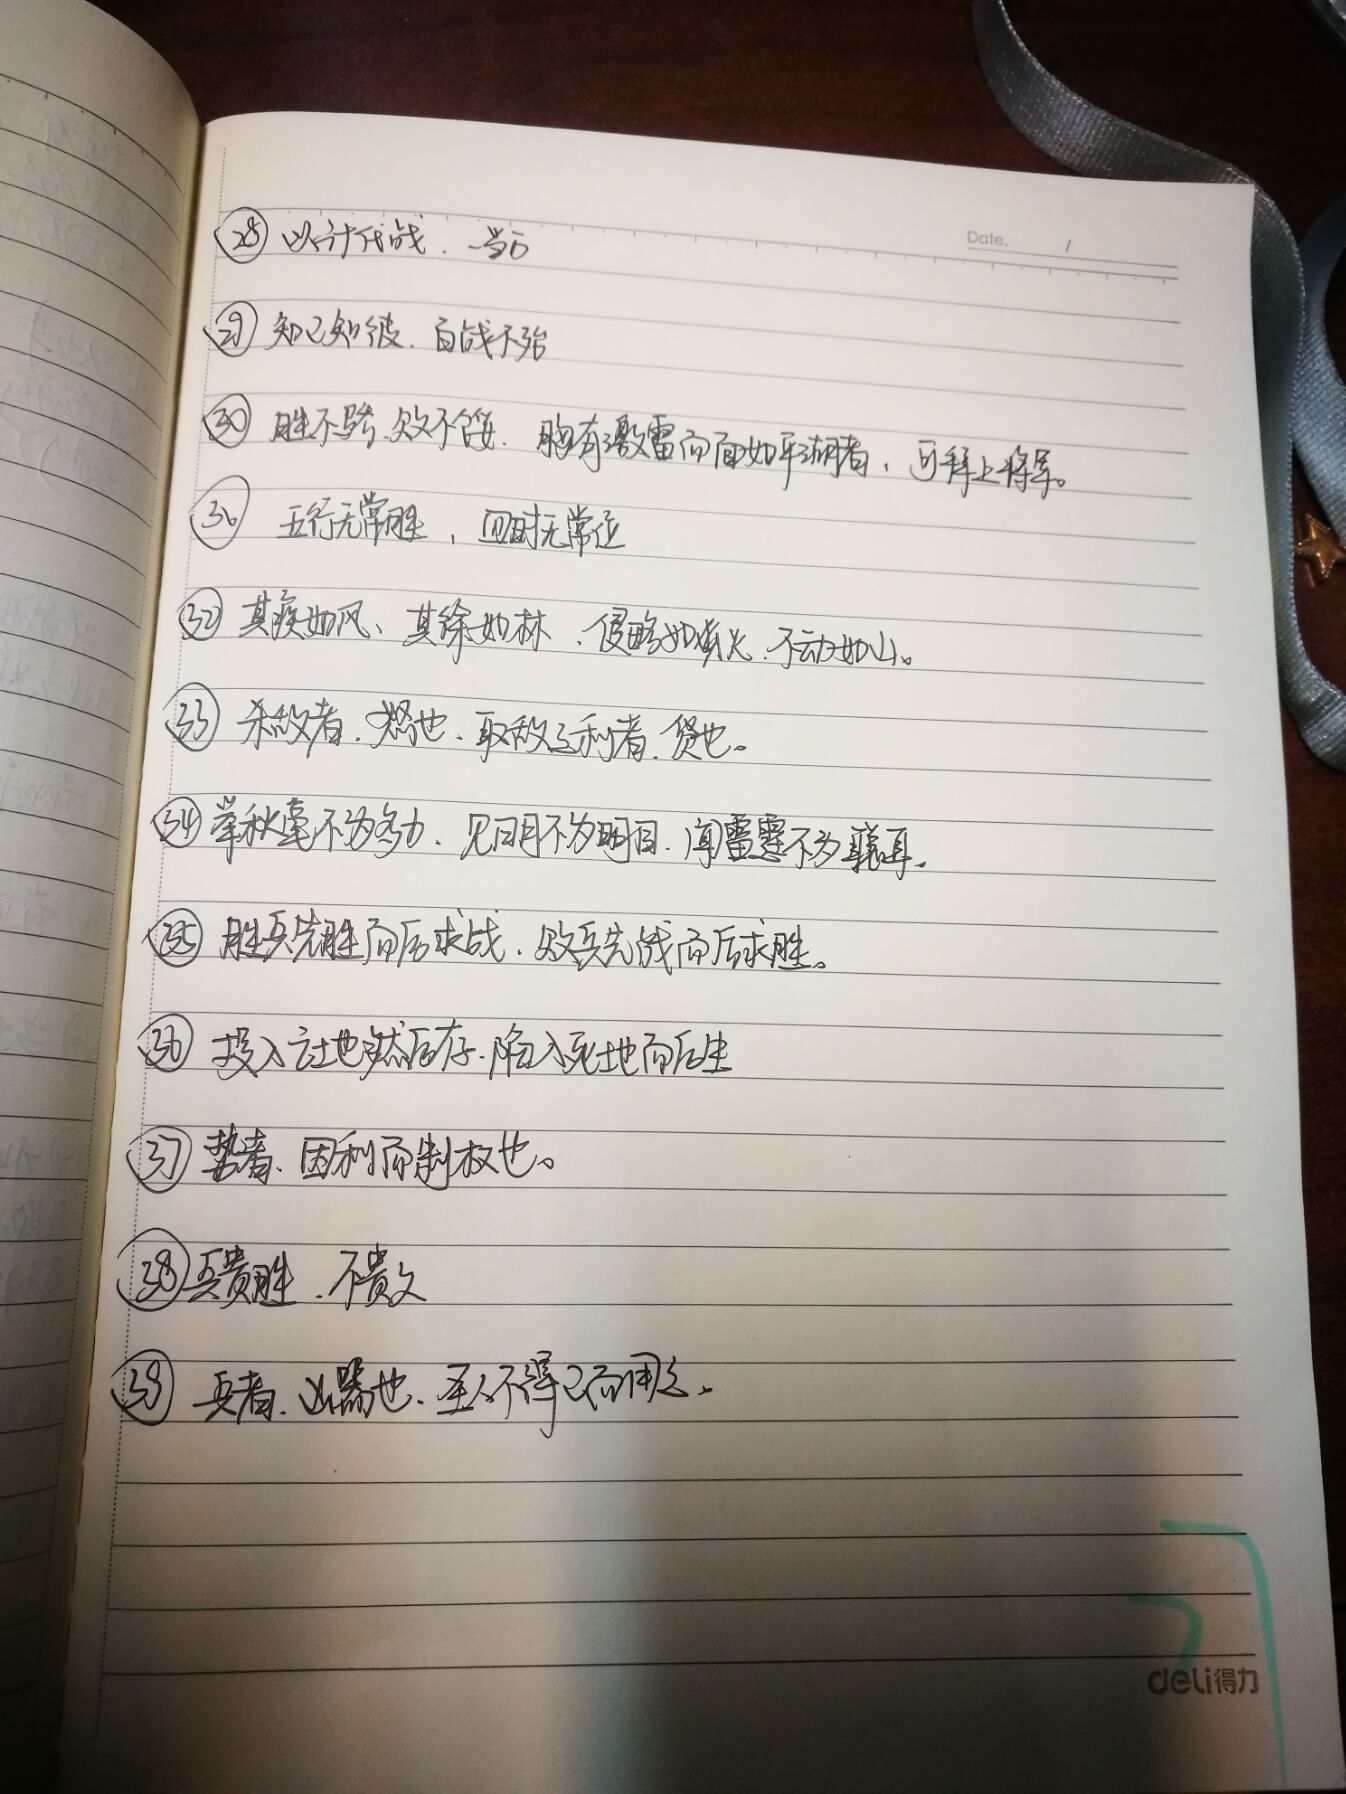 Date. /
㉘ 以计代战、一当百
㉙ 知己知彼、百战不殆
㉚ 胜不骄、败不馁、胸有激雷而面如平湖者，可拜上将军。
㉛ 五行无常胜，四时无常位
㉜ 其疾如风、其徐如林、侵略如火、不动如山。
㉝ 杀敌者、怒也、取敌之利者、货也。
㉞ 举秋毫不为多力、见日月不为明目、闻雷霆不为聪耳。
㉟ 胜兵先胜而后求战、败兵先战而后求胜。
㊱ 投入亡地然后存、陷入死地而后生
㊲ 势者、因利而制权也。
㊳ 兵贵胜、不贵久
㊴ 兵者、凶器也、圣人不得已而用之。
deli得力